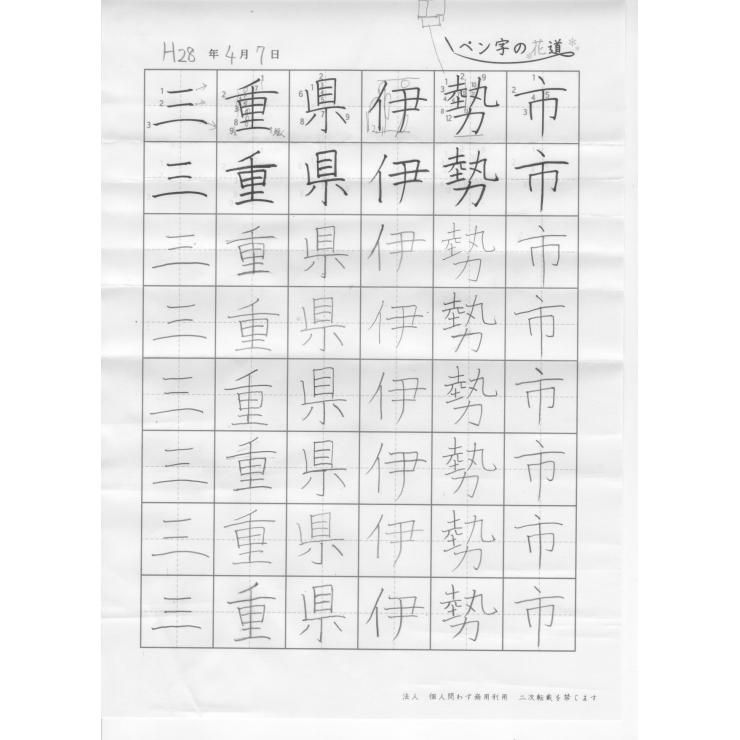 H28年4月7日
ペン字の花道
三重県伊勢市
三重県伊勢市
三重県伊勢市
三重県伊勢市
三重県伊勢市
三重県伊勢市
三重県伊勢市
三重県伊勢市
法人 個人問わず商用利用 二次転載を禁じます